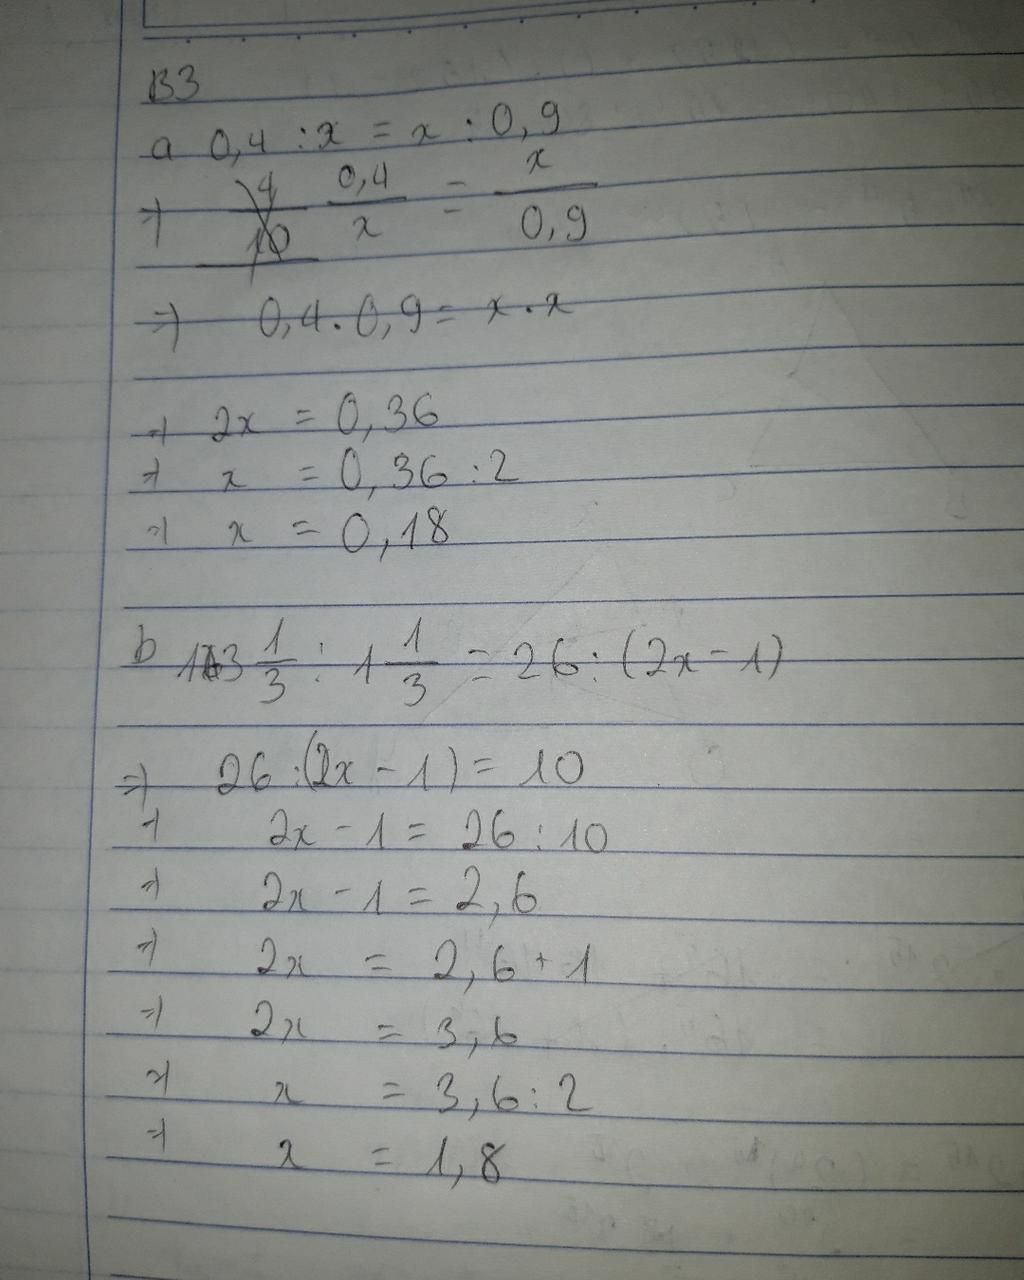 B3
a 0,4 : x = x : 0,9
=> 0,4/x = x/0,9
=> 0,4 . 0,9 = x . x
=> 2x = 0,36
=> x = 0,36 : 2
=> x = 0,18
b 13 1/3 : 1 1/3 = 26 : (2x - 1)
=> 26 : (2x - 1) = 10
=> 2x - 1 = 26 : 10
=> 2x - 1 = 2,6
=> 2x = 2,6 + 1
=> 2x = 3,6
=> x = 3,6 : 2
=> x = 1,8